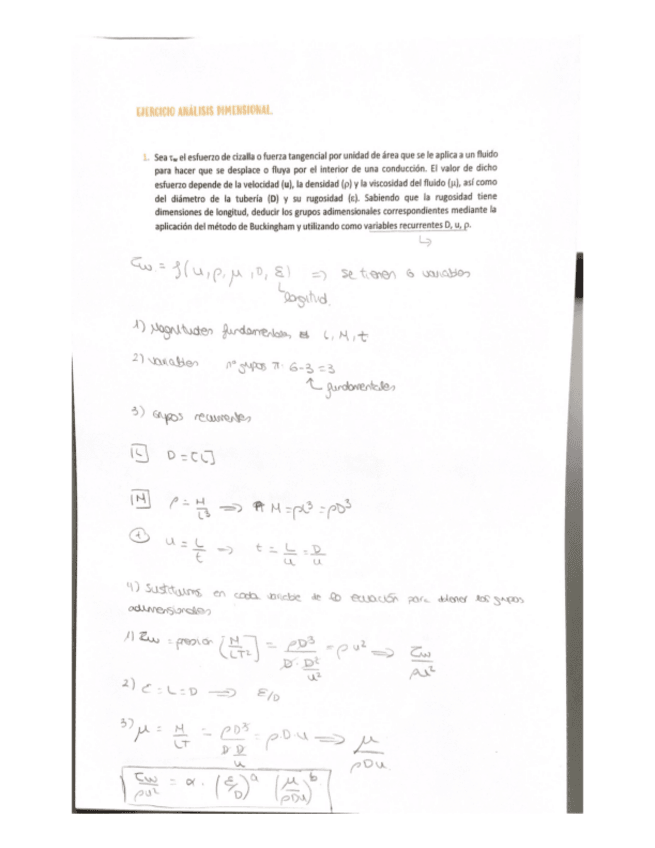 EJERCICIO ANÁLISIS DIMENSIONAL.
1. Sea τw el esfuerzo de cizalla o fuerza tangencial por unidad de área que se le aplica a un fluido
para hacer que se desplace o fluya por el interior de una conducción. El valor de dicho
esfuerzo depende de la velocidad (u), la densidad (ρ) y la viscosidad del fluido (μ), así como
del diámetro de la tubería (D) y su rugosidad (ε). Sabiendo que la rugosidad tiene
dimensiones de longitud, deducir los grupos adimensionales correspondientes mediante la
aplicación del método de Buckingham y utilizando como variables recurrentes D, u, ρ.
τw = f(u, ρ, μ, D, ε) => Se tienen 6 variables
longitud.
1) Magnitudes fundamentales L, M, t
2) variables nº grupos π: 6-3=3
fundamentales
3) Grupos recurrentes
[L] D = [L]
[M] ρ = M/L³ => M = ρL³ = ρD³
(t) u = L/t => t = L/u = D/u
4) Sustituimos en cada variable de la ecuación para obtener los grupos
adimensionales
1) τw = presión [M/LT²] = ρD³/(D·D²/u²) = ρu² => τw/ρu²
2) ε = L = D => ε/D
3) μ = M/LT = ρD³/(D·D/u) = ρ·D·u => μ/ρDu
τw/ρu² = α · (ε/D)^a (μ/ρDu)^b